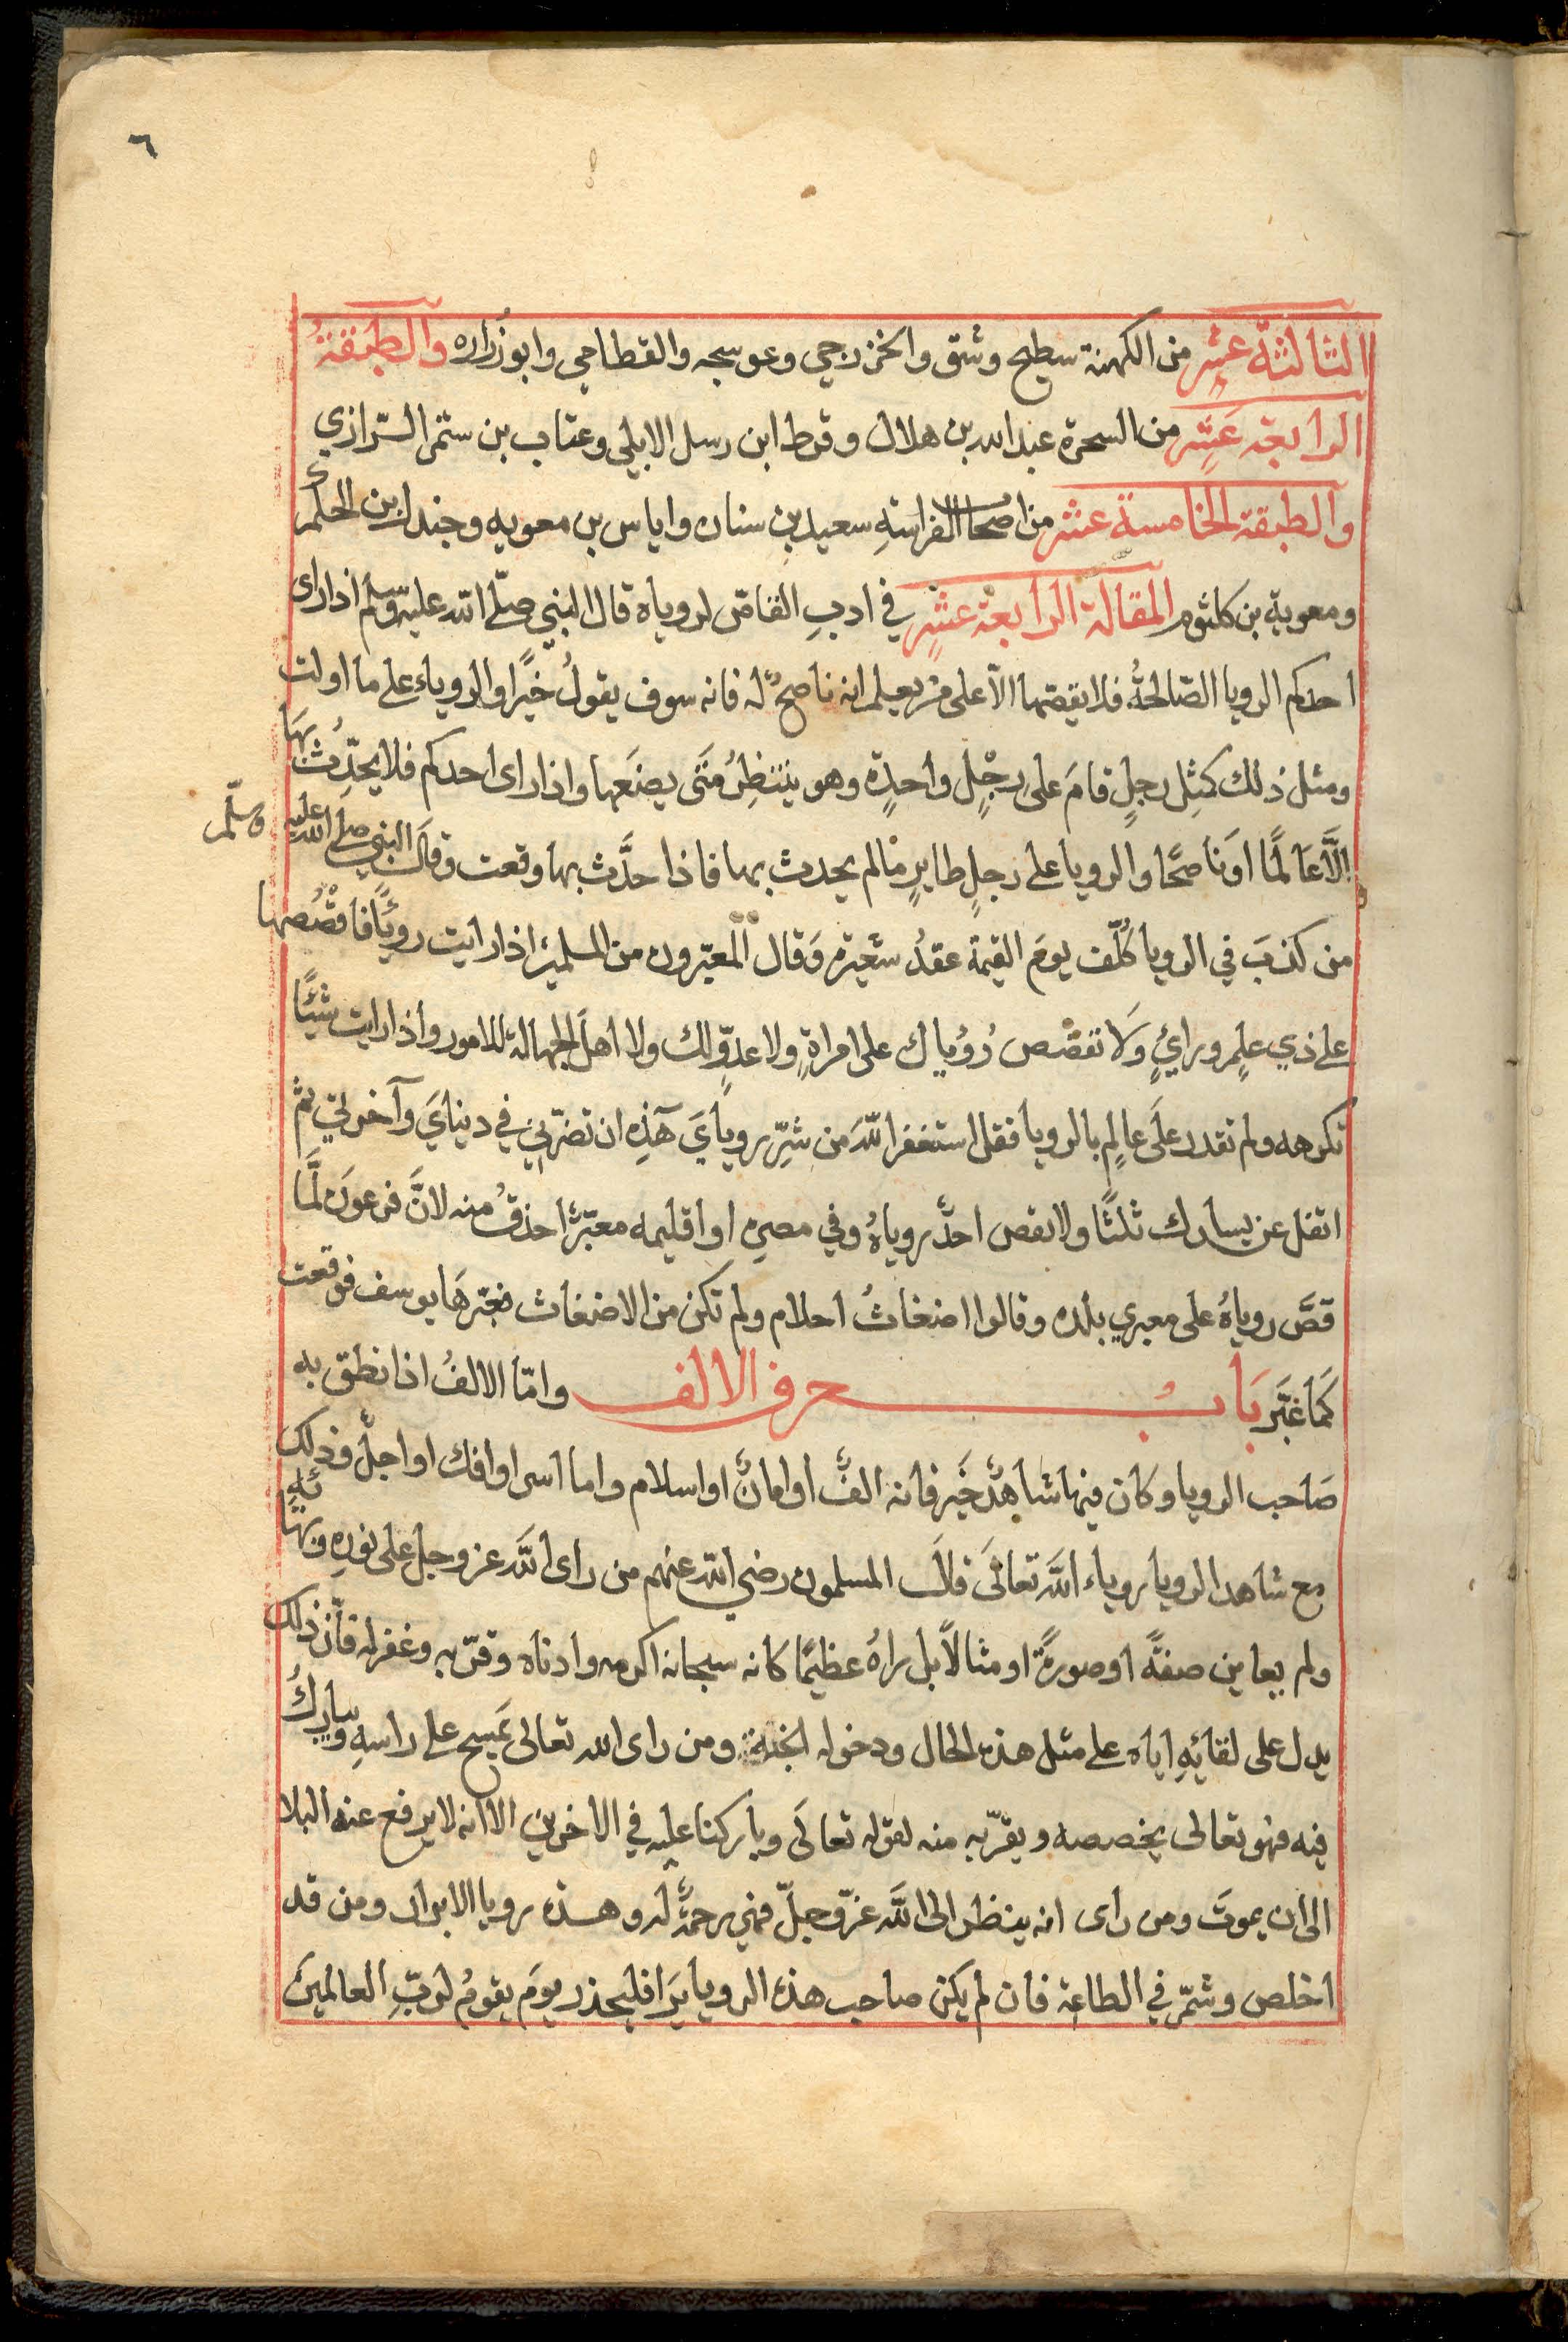 ٦
الثالثة عشر من الكهنة سطيح وشق والخزرجي وعوسجه والقطامي وابوزُراره والطبقةُ
الرابعة عَشر من السحرة عبد الله بن هلال وقرط ابن رسل الابلي وعتاب بن ستمر الرازي
والطبقة الخامسة عشر من اصحاب الفراسةِ سعيد بن سنان واياس بن معويه وجندل بن الحكم
ومعوية بن كلثوم المقالة الرابعة عشر في ادبِ القاصّ لروياه قال النبي صلّى الله عليه وسلم اذا راى
احدكم الرويا الصّالحةُ فلا يقصّها الاّ على من يعلم انه ناصحٌ له فانه سوف يقولُ خيًرا والروياء على ما اولت
ومثل ذلك كمثِل رجلٍ قامَ على رِجْلٍ واحدٍة وهو ينتظِرُ مَتَى يضَعها واذا راى احدكم فلا يحدِّثُ بهَا
الَّا عَالمًا اوَناصحًا والرويا على رجلٍ طايرٍ مالم يحدث بها فاذا حدَّث بها وقعت وقالَ النبي صلى الله عليه وسلّم
من كذبَ في الرويا كُلّف يومَ القيمة عقدُ شعيَرة وَقال المعبّرون من المسلمين اذا رايت روياً فاقصُصها
على ذي علمٍ ورايٍ وَلا تقصّص رُؤياك على امراةٍ ولا عدوٍّ لك ولا اهلَ الجهالة للامور واذا رايت شيئًا
تكرهه ولم تقدر علَى عالمٍ بالرويا فقل استغفر اللّهَ من شرِّ روياَيَ هَذِهِ ان تضرّني في دينايَ وآخرتي ثم
اتفل عن يسارك ثلثًا ولا يقص احدٌ روياهُ وفي مصرِه او اقليمه معبّرًا احذقُ منه لانَّ فرعونَ لمَّا
قصَّ روياهُ على معبري بلده وقالوا اضغاثُ احلام ولم تكن من الاضغاث فعبّرهَا يوسف فوقعت
كمَا عبّر بَابُ حرف الالف وامّا الالفُ اذا نطق به
صَاحب الرويا وكان فيها شاهدٌ خيَر فانه الفٌ او امانٌ او اسلام واما اسر او افك او اجلٌ وذلك
مع شاهد الرويا روياء اللَّه تعالَى قالَ المسلمون رضي الله عنهم من راى اللَّه عز وجل على نورِهِ وبهَائهِ
ولم يعاين صفةً او صورةً او مثالاً بل راهُ عظيمًا كانه سبحانه اكرمه وادناه وقرّبه وغفر له فانّ ذلك
يدل على لقائِهِ اياه على مثل هذه الحال ودخوله الجنة ومن راى الله تعالى يمَسح على راسِهِ ويباركُ
فيه فهو تعالى يخصصه ويقرّبه منه لقوله تعالَى وباركنا عليه في الاخرين الا انه لا يرفع عنه البلا
الى ان يموتَ ومن راى انه ينظر الى اللَّه عزّ وجلّ فهي رحمةٌ له وهذه رويا الابرار ومن قد
اخلص وشمّر في الطاعة فان لم يكن صاحب هذه الرويا بَرا فليحذر يومَ يقومُ لربِّ العالمينَ